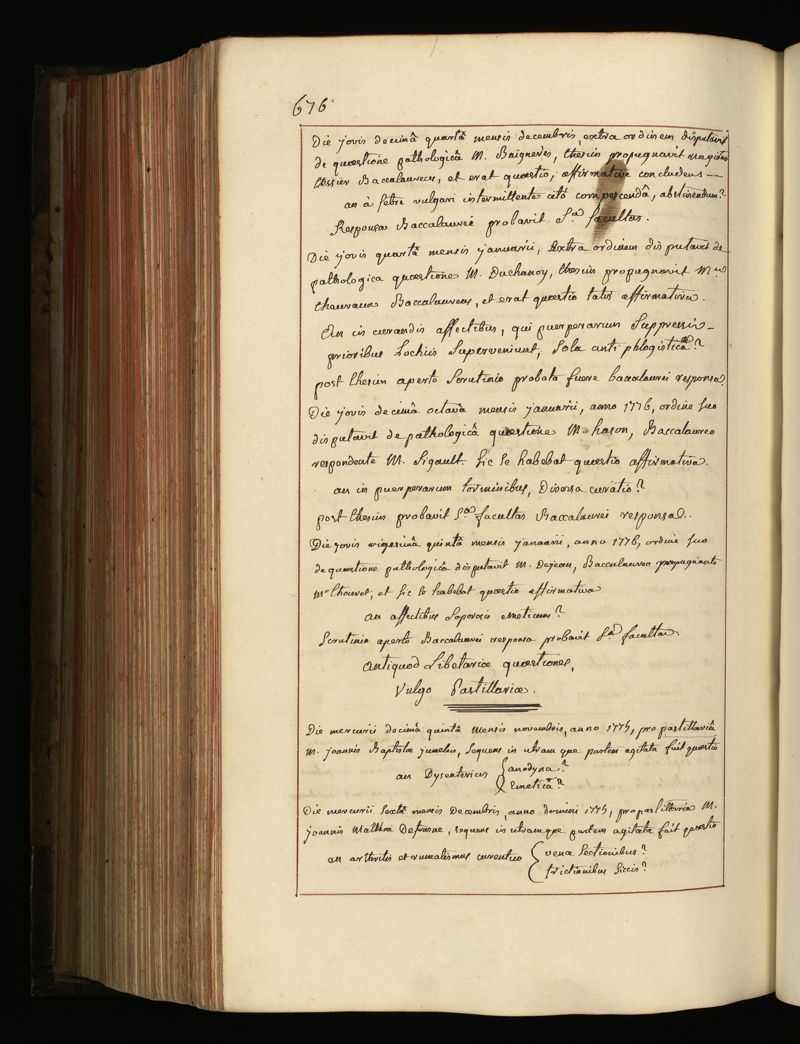 676
Die jovis decimâ quartâ mensis decembris, extra ordinem disputavit
de quæstione pathologicâ M. Baigneres, thesin propugnavit magister
Baccalaureus, et erat quæstio, affirmative concludens --
an à febre vulgari intermittente citò compescendâ, abstinendum?
Responsa Baccalaurei probavit S.a facultas.
Die jovis quartâ mensis januarii, Extra ordinem disputavit de
pathologica quæstione M. Duchanoy, thesin propugnavit M.
Baccalaureus, et erat quæstio talis affirmativa.
An in curandis affectibus, qui puerperarum Suppressis
prioribus Lochiis Superveniunt, Sola antiphlogistica?
post thesin aperto Scrutinio probata fuere baccalaurei responsa
Die jovis decimâ octavâ mensis januarii, anno 1776, ordine suo
disputavit de pathologicâ quæstione M. hason, Baccalaureo
respondente M. Sigault. Sic se habebat quæstio affirmativa.
an in puerperarum torminibus, Diversa curatio?
post thesin probavit S.a facultas Baccalaurei responsa.
Die jovis vigesimâ quintâ mensis januarii, anno 1776, ordine suo
de quæstione pathologicâ disputavit M. Dejean, Baccalaureo propugnante
M.o et sic se habebat quæstio affirmativa
an affectibus Soporosis emeticum?
Scrutinio aperto Baccalaurei responsa probavit S.a facultas.
Antiquod Libetariæ quæstiones,
Vulgo Pastillariæ.
Die mercurii decimâ quintâ mensis novembris, anno 1775, pro pastillariâ
M. joannis Baptistæ jumelin, Sequens in utramque partem agitata fuit quæstio
an Dysentericis { anodyna?
Emetica?
Die mercurii Sextâ mensis Decembris, anno domini 1775, pro pastillaria M.
joannis Matthæi Defrasne, sequens in utramque partem agitata fuit quæstio
an arthritis et rumatismus curentur { venæ Sectionibus?
frictionibus Siccis?